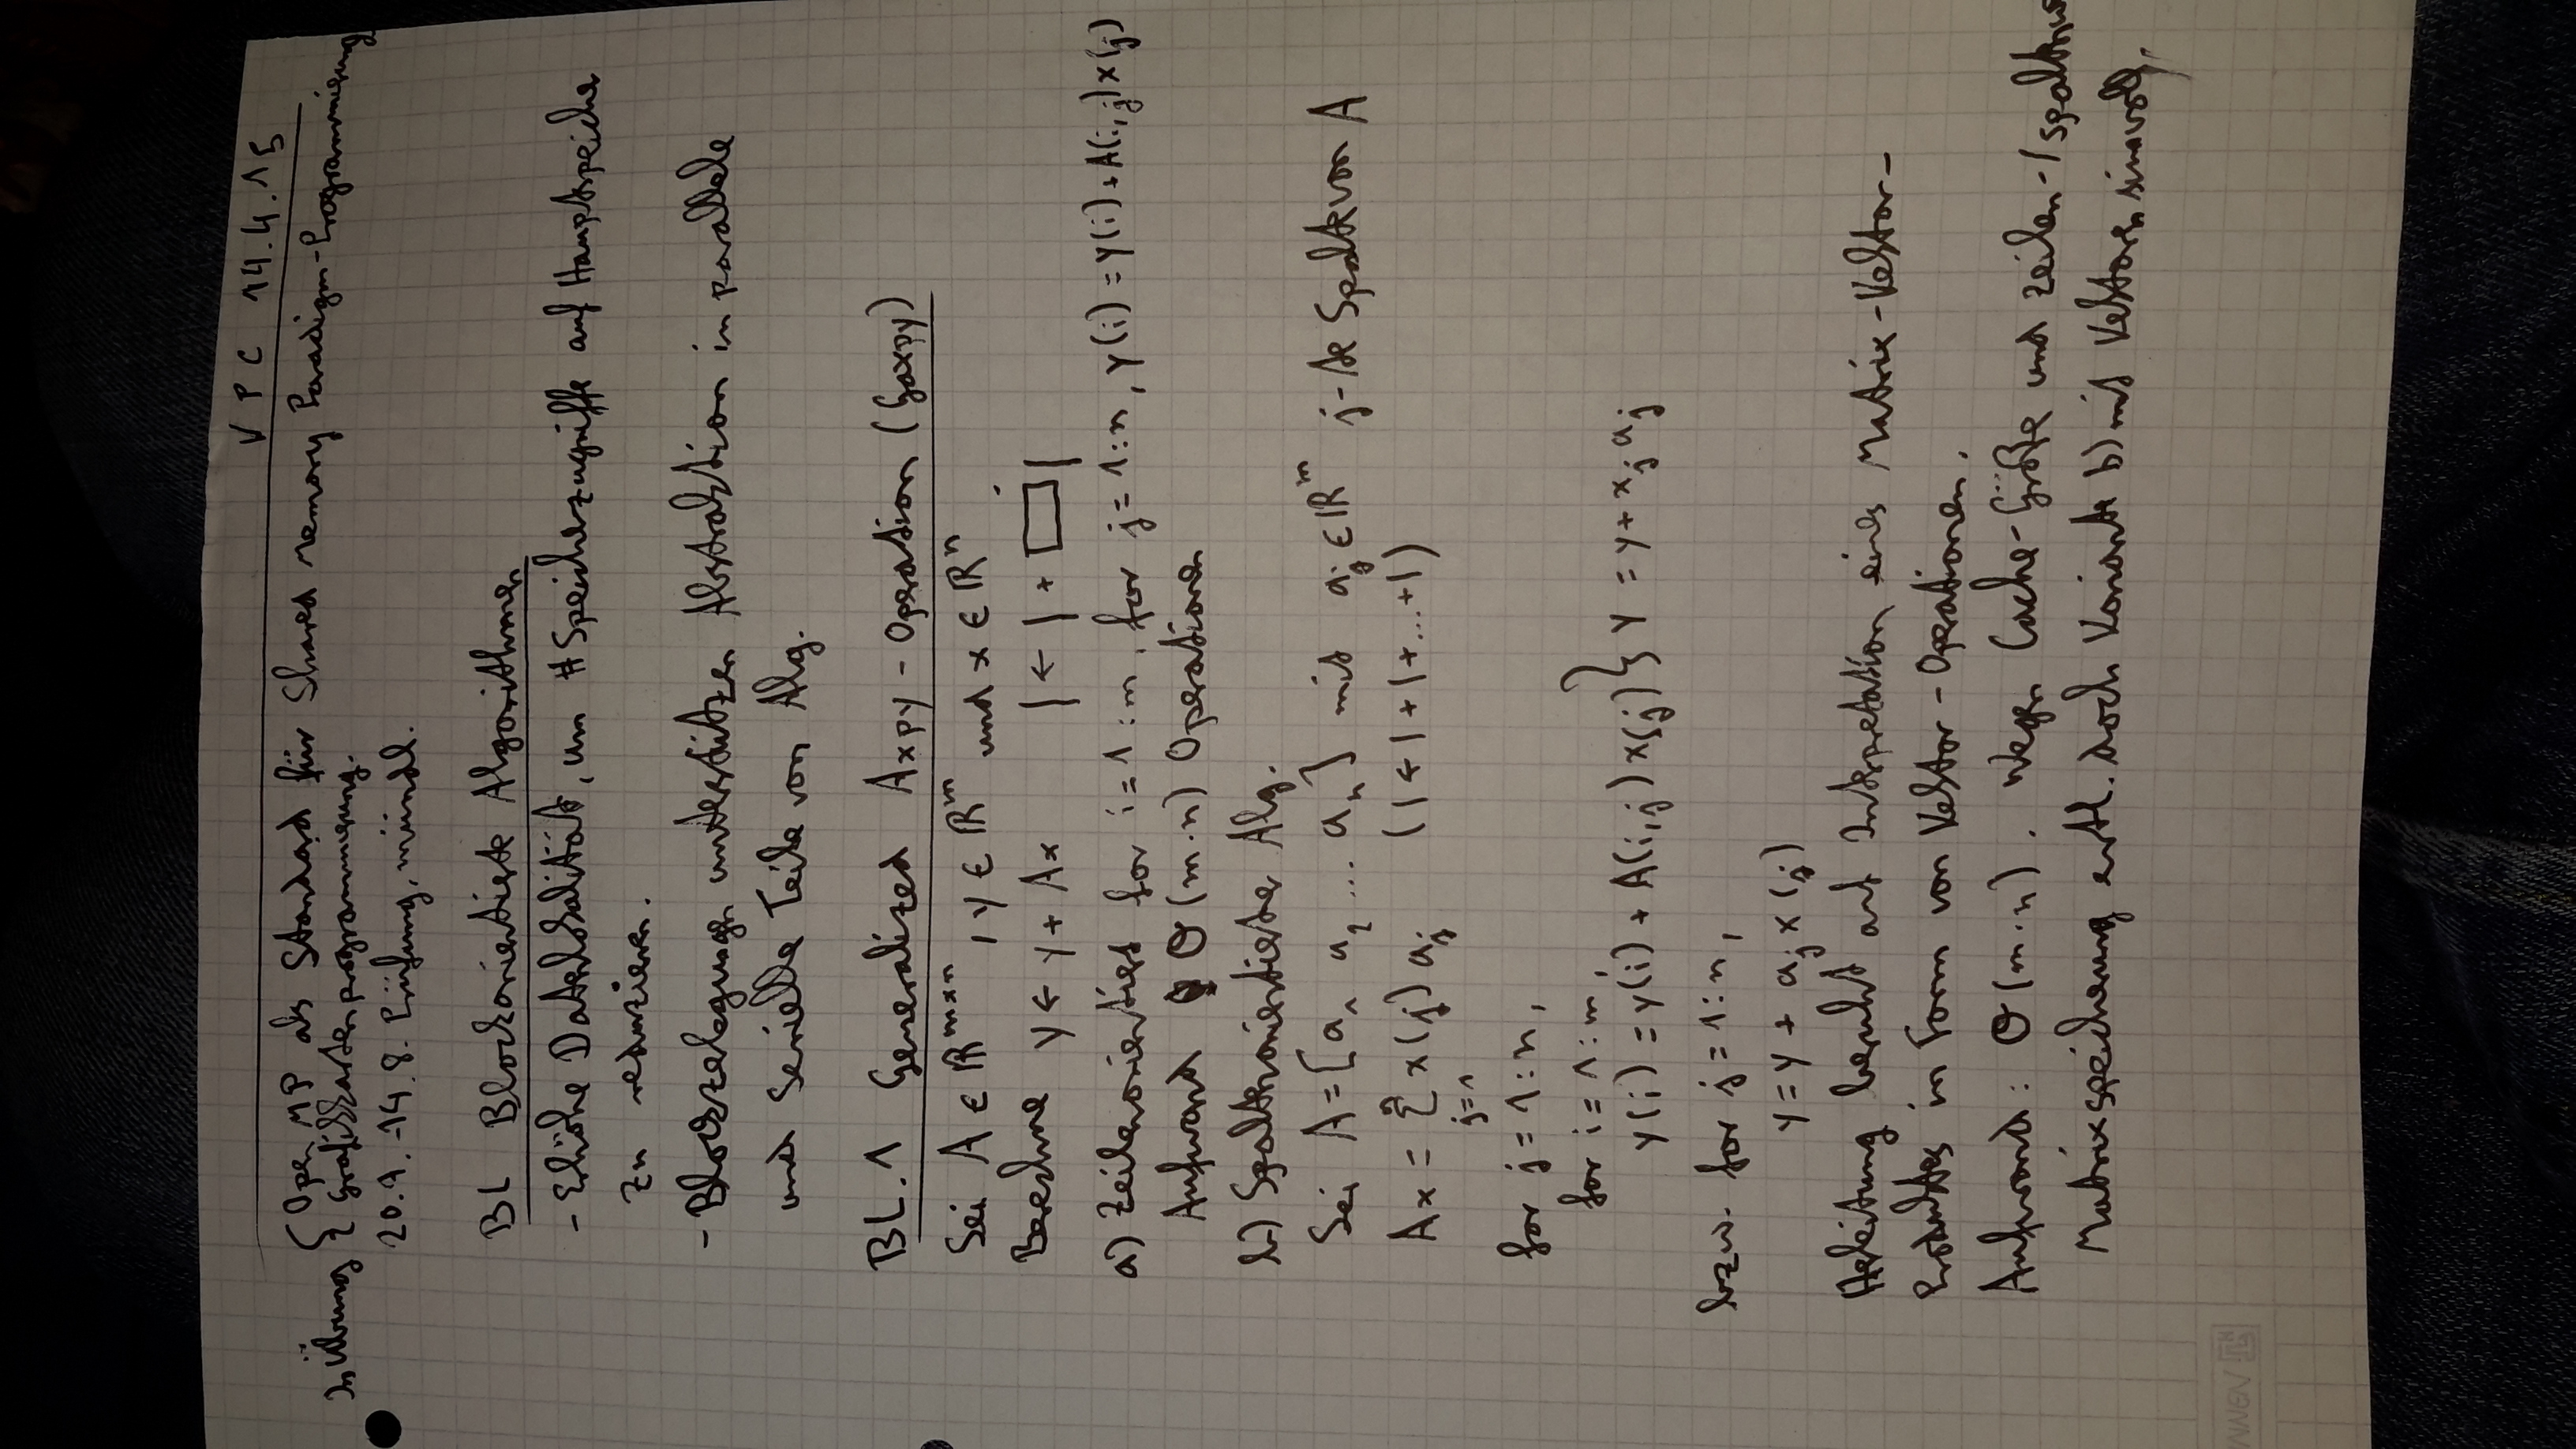 VPC 14.4.15
In Übung { OpenMP als Standard für Shared Memory Paradigm-Programmierung
Grafikkartenprogrammierung.
20.7.-14.8. Prüfung, mündl.
BL Blockorientierte Algorithmen
- Erhöhe Datenlokalität, um #Speicherzugriffe auf Hauptspeicher
zu reduzieren.
- Blockzerlegungen unterstützen Abstraktion in parallele
und serielle Teile von Alg.
BL.1 Generalized Axpy-Operation (Gaxpy)
Sei A ∈ ℝ^{m×n}, y ∈ ℝ^m und x ∈ ℝ^n.
Berechne y ← y + Ax | ← | + ▭|
a) Zeilenorientiert for i=1:m, for j=1:n, y(i)=y(i)+A(i,j)x(j)
Aufwand O(m·n) Operationen
b) Spaltenorientierter Alg.
Sei A=[a_1 a_2 ... a_n] mit a_j ∈ ℝ^m j-te Spalte von A
Ax = Σ_{j=1}^n x(j) a_j (| ← | + | + ... + |)
for j=1:n,
for i=1:m,
y(i) = y(i) + A(i,j)x(j) } y = y + x_j a_j
bzw. for j=1:n,
y = y + a_j x(j)
Herleitung beruht auf Interpretation eines Matrix-Vektor-
Produktes in Form von Vektor-Operationen.
Aufwand: O(m·n). Wegen Cache-Größe und zeilen-/spaltenw
Matrixspeicherung evtl. doch Variante b) mit Vektoren sinnvoll.
NNEN